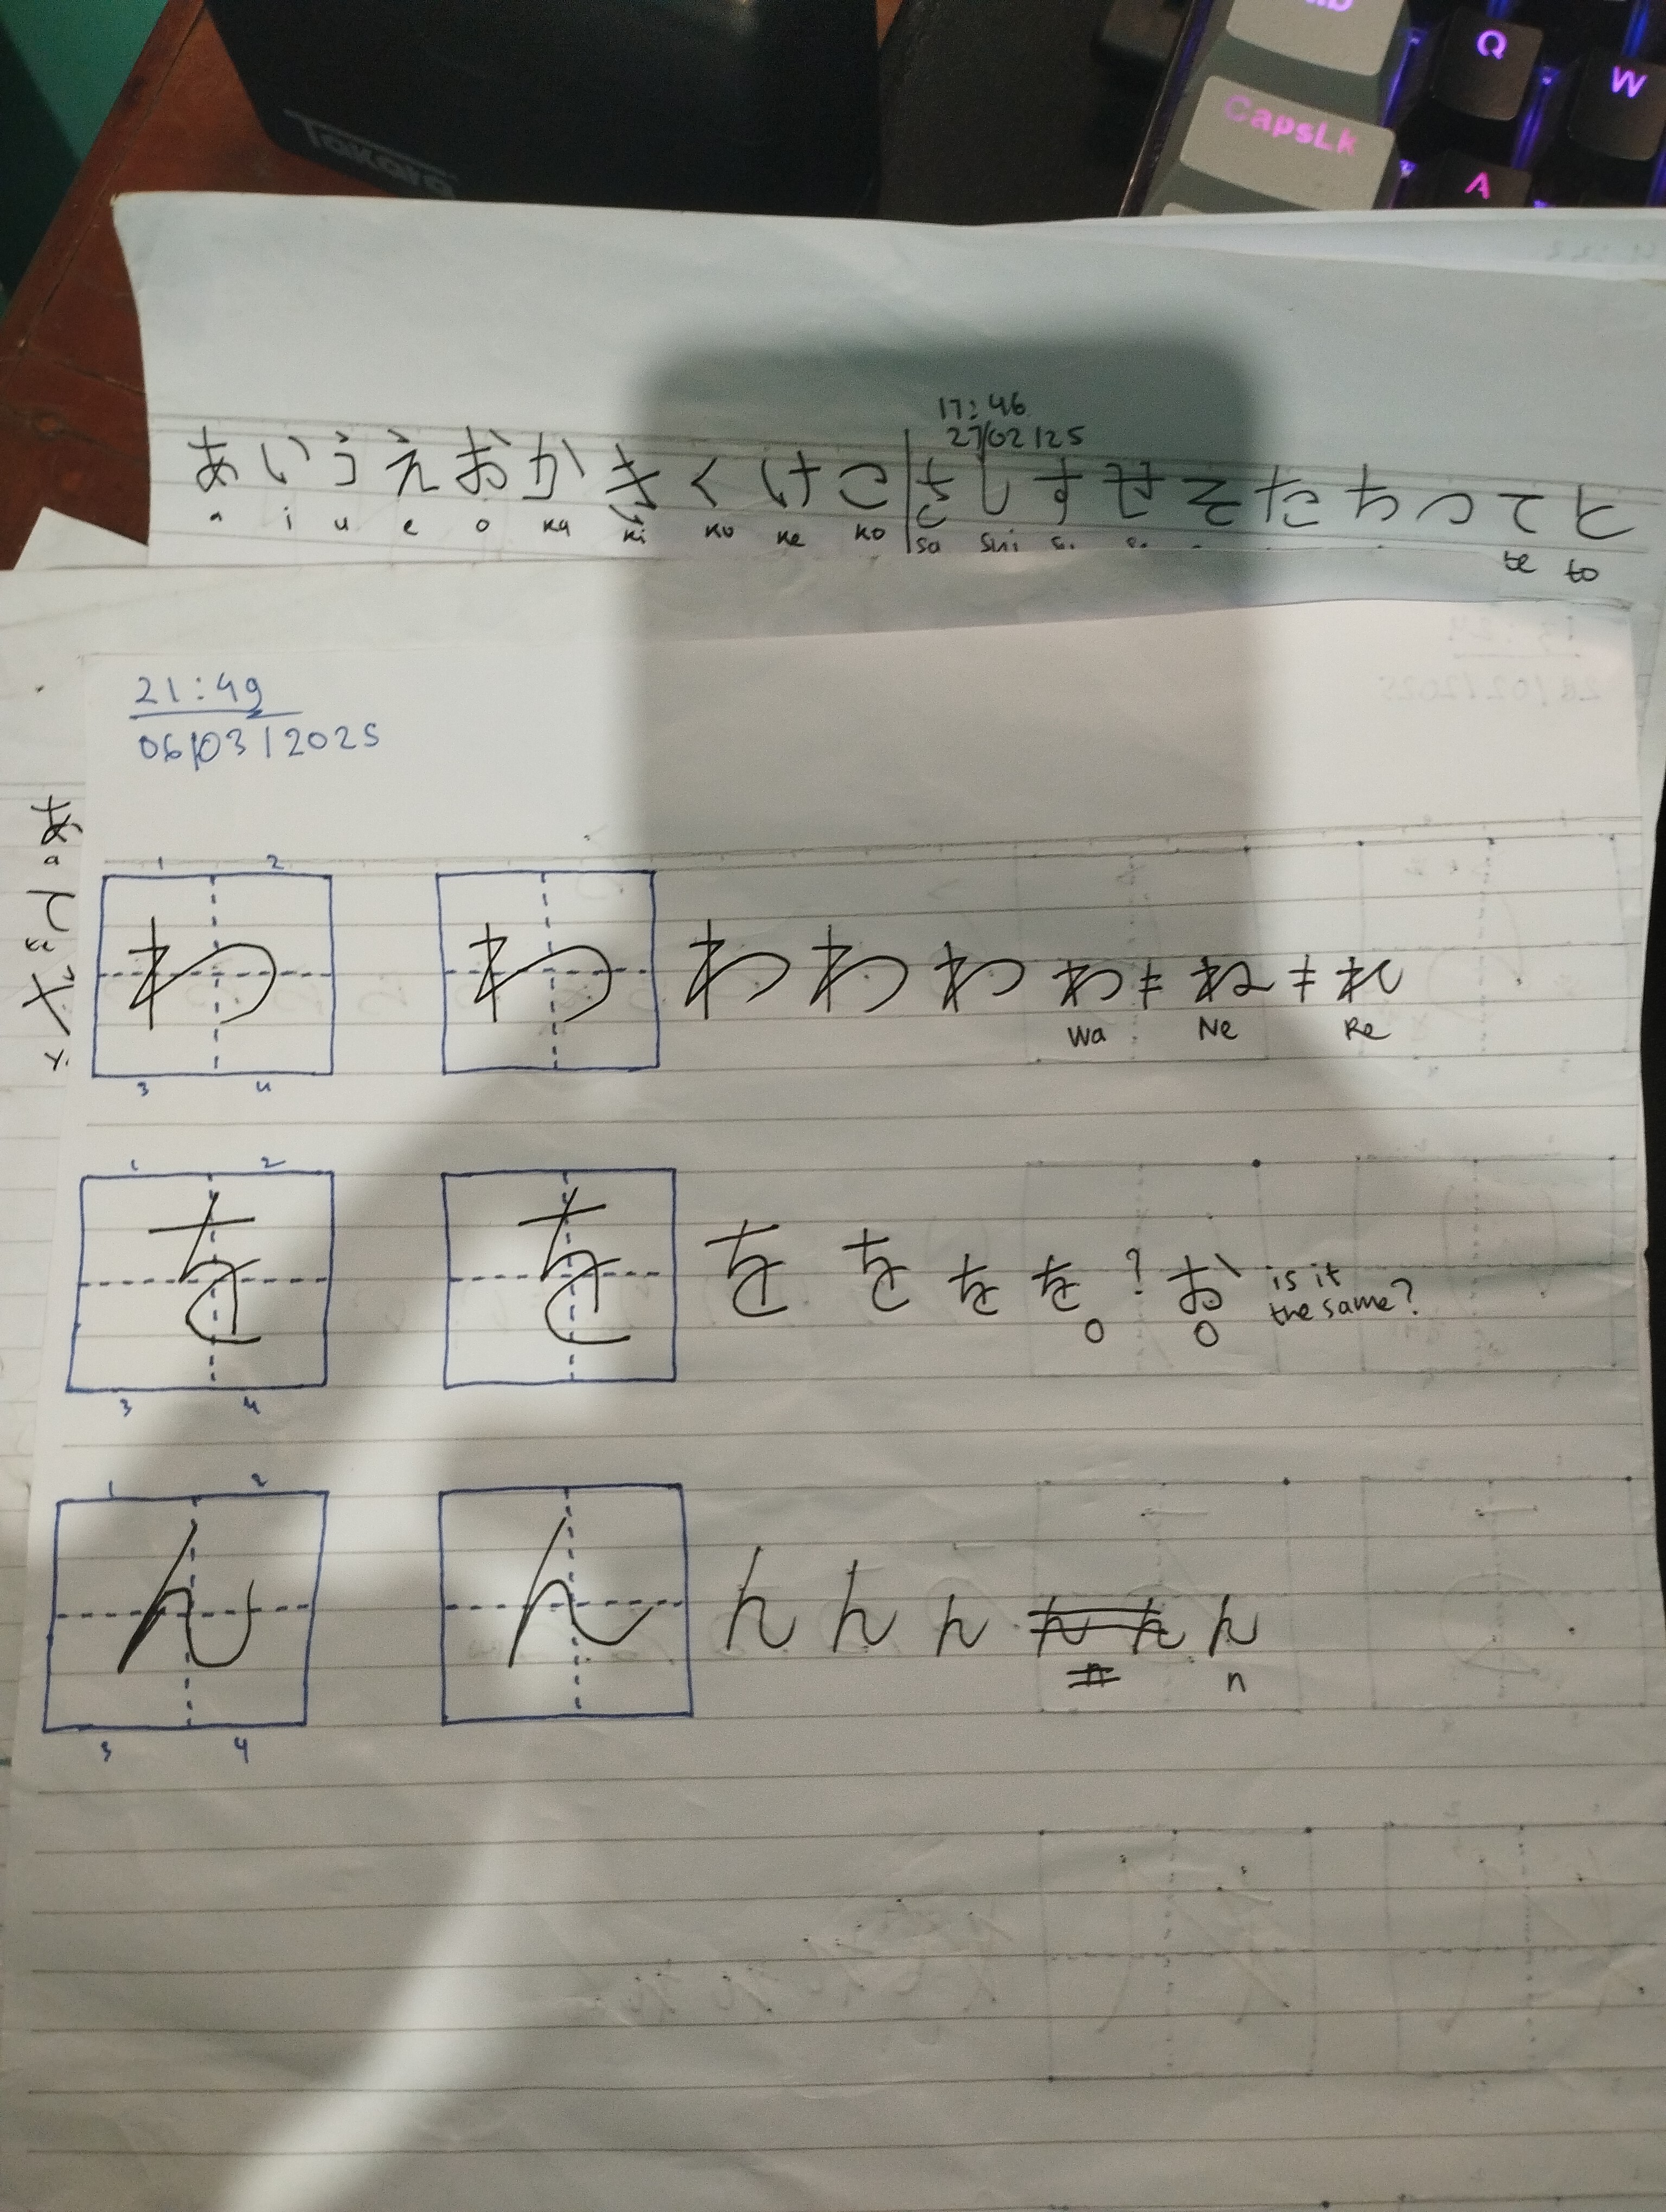 Takara
Q
W
CapsLk
A
17:46
27/02/25
あ い う え お か き く け こ さ し す せ そ た ち つ て と
a i u e o ka ki ku ke ko sa shi te to
21:49
06/03/2025
あ
a
1 2
わ わ わ わ わ わ ≠ ね ≠ れ
Wa Ne Re
3 4
1 2
を を を を を を ? お is it
the same?
o o
3 4
1 2
ん ん ん ん ん ん ん ん
n n
3 4